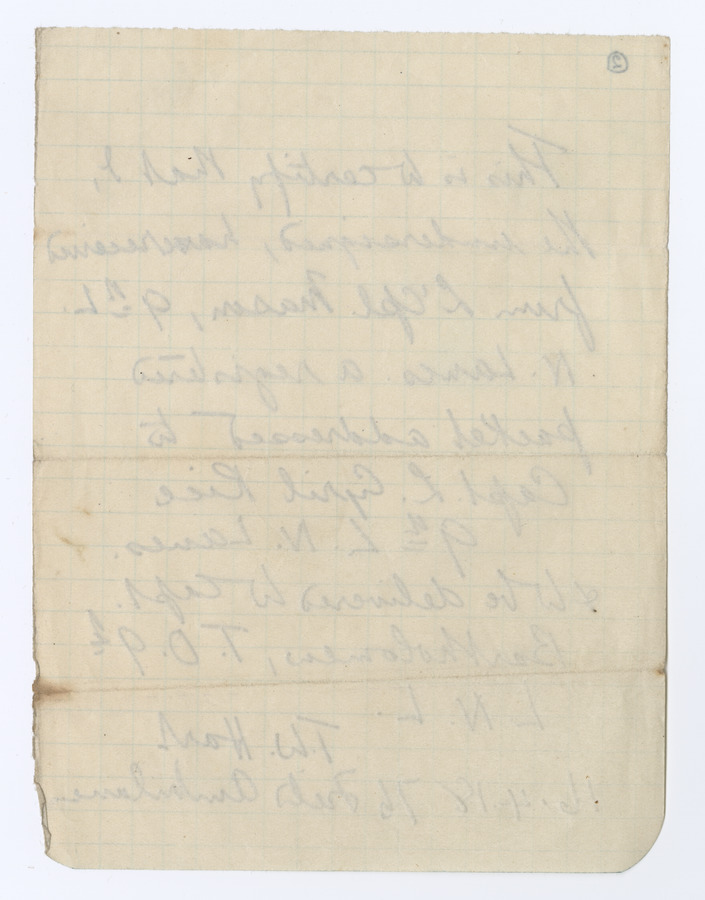 ②
This is to certify that I,
the undersigned, have received
from L/Cpl. Mason, 9th L.
N. Lancs a registered
packet addressed to
Capt. L. Cyril Rice
9th L. N. Lancs.
& to be delivered to Capt.
Bartholomew, T. O. 9th
L. N. L
T.W. Hart
16.4.18 76 Field Ambulance